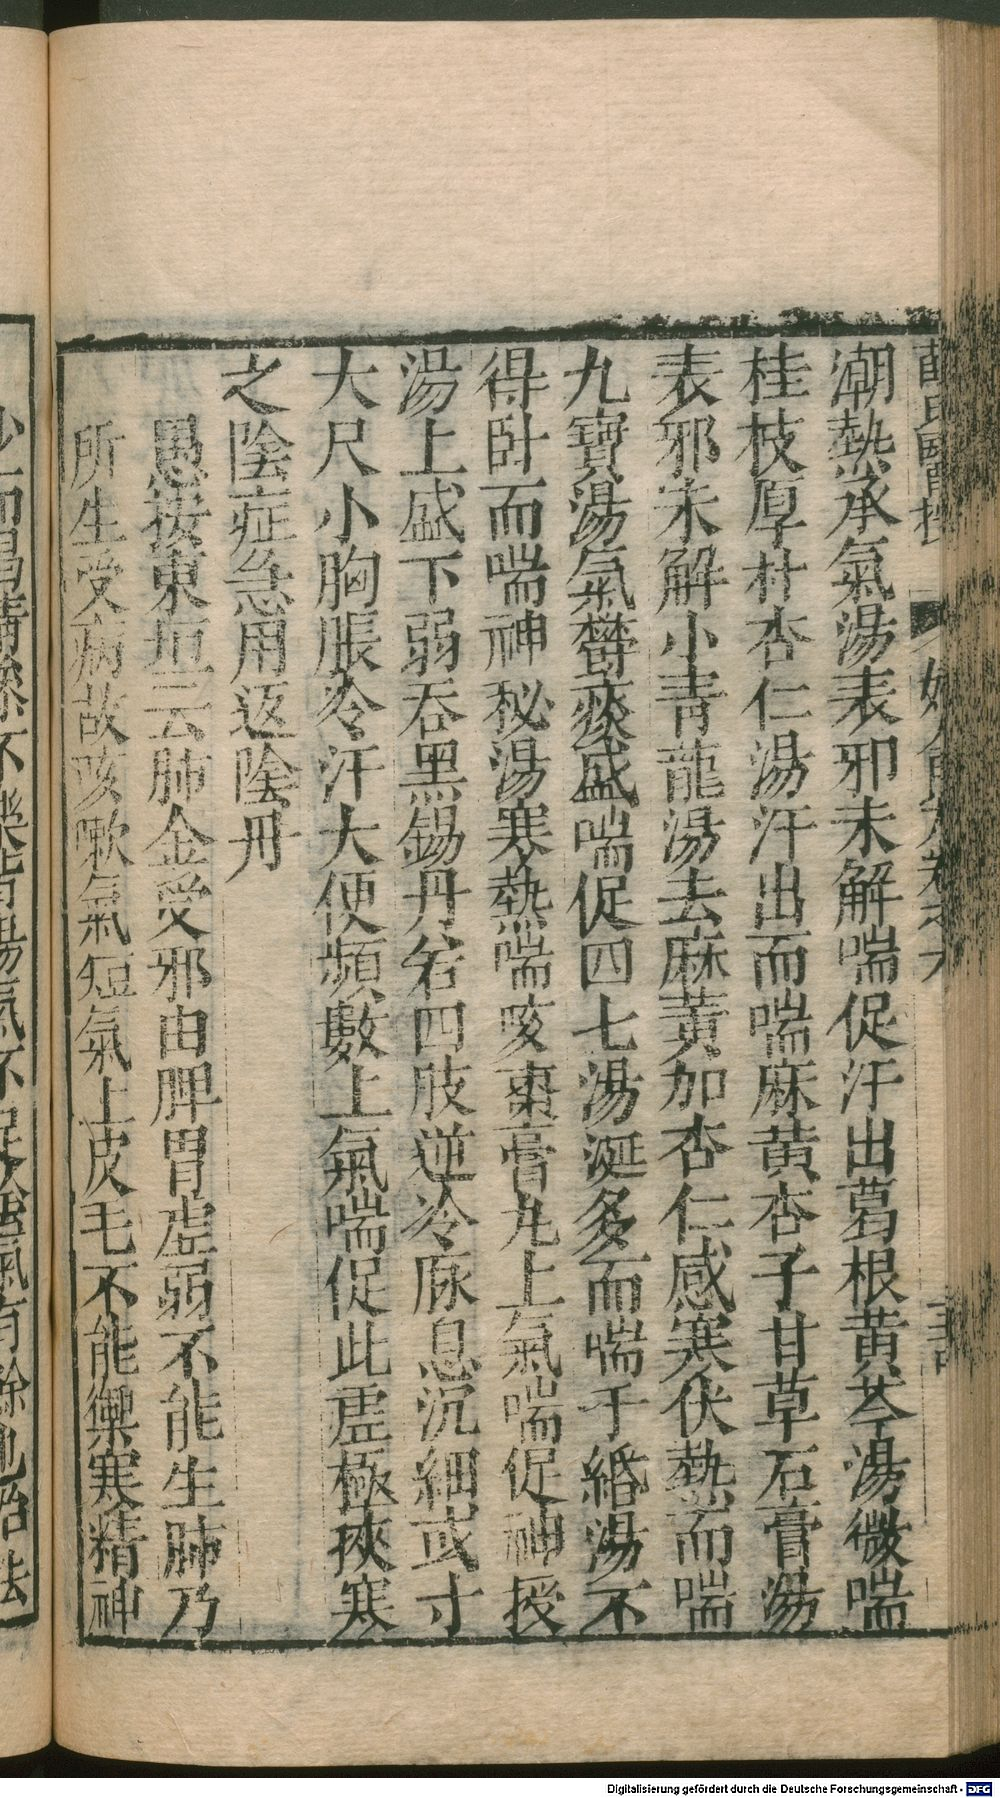 潮熱承氣湯表邪未解喘促汗出葛根黄芩湯微喘
桂枝厚朴杏仁湯汗出而喘麻黄杏子甘草石膏湯
表邪未解小青龍湯去麻黄加杏仁感寒伏熱而喘
九寶湯氣鬱痰盛喘促四七湯涎多而喘千緡湯不
得卧而喘神秘湯寒熱喘咳棗膏丸上氣喘促神授
湯上盛下弱吞黑錫丹若四肢逆冷脉息沉細或寸
大尺小胸脹冷汗大便頻數上氣喘促此虚極挾寒
之陰症急用返陰丹
愚按東垣云肺金受邪由脾胃虚弱不能生肺乃
所生受病故咳嗽氣短氣上皮毛不能禦寒精神
Digitalisierung gefördert durch die Deutsche Forschungsgemeinschaft - DFG